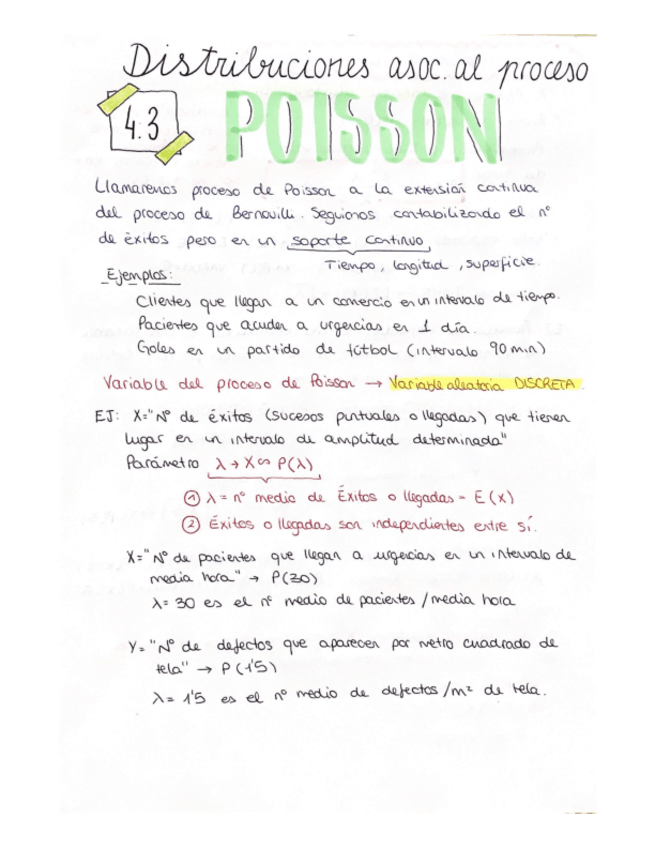 Distribuciones asoc. al proceso
4.3 POISSON
Llamaremos proceso de Poisson a la extensión continua
del proceso de Bernouilli. Seguimos contabilizando el nº
de éxitos pero en un soporte continuo
Tiempo, longitud, superficie.
Ejemplos:
Clientes que llegan a un comercio en un intervalo de tiempo.
Pacientes que acuden a urgencias en 1 día.
Goles en un partido de fútbol (intervalo 90 min)
Variable del proceso de Poisson → Variable aleatoria DISCRETA.
EJ: X="Nº de éxitos (sucesos puntuales o llegadas) que tienen
lugar en un intervalo de amplitud determinada"
Parámetro λ → X ∽ P(λ)
① λ = nº medio de Éxitos o llegadas = E(x)
② Éxitos o llegadas son independientes entre sí.
X="Nº de pacientes que llegan a urgencias en un intervalo de
media hora" → P(30)
λ= 30 es el nº medio de pacientes / media hora
Y= "Nº de defectos que aparecen por metro cuadrado de
tela" → P(1'5)
λ= 1'5 es el nº medio de defectos/m² de tela.